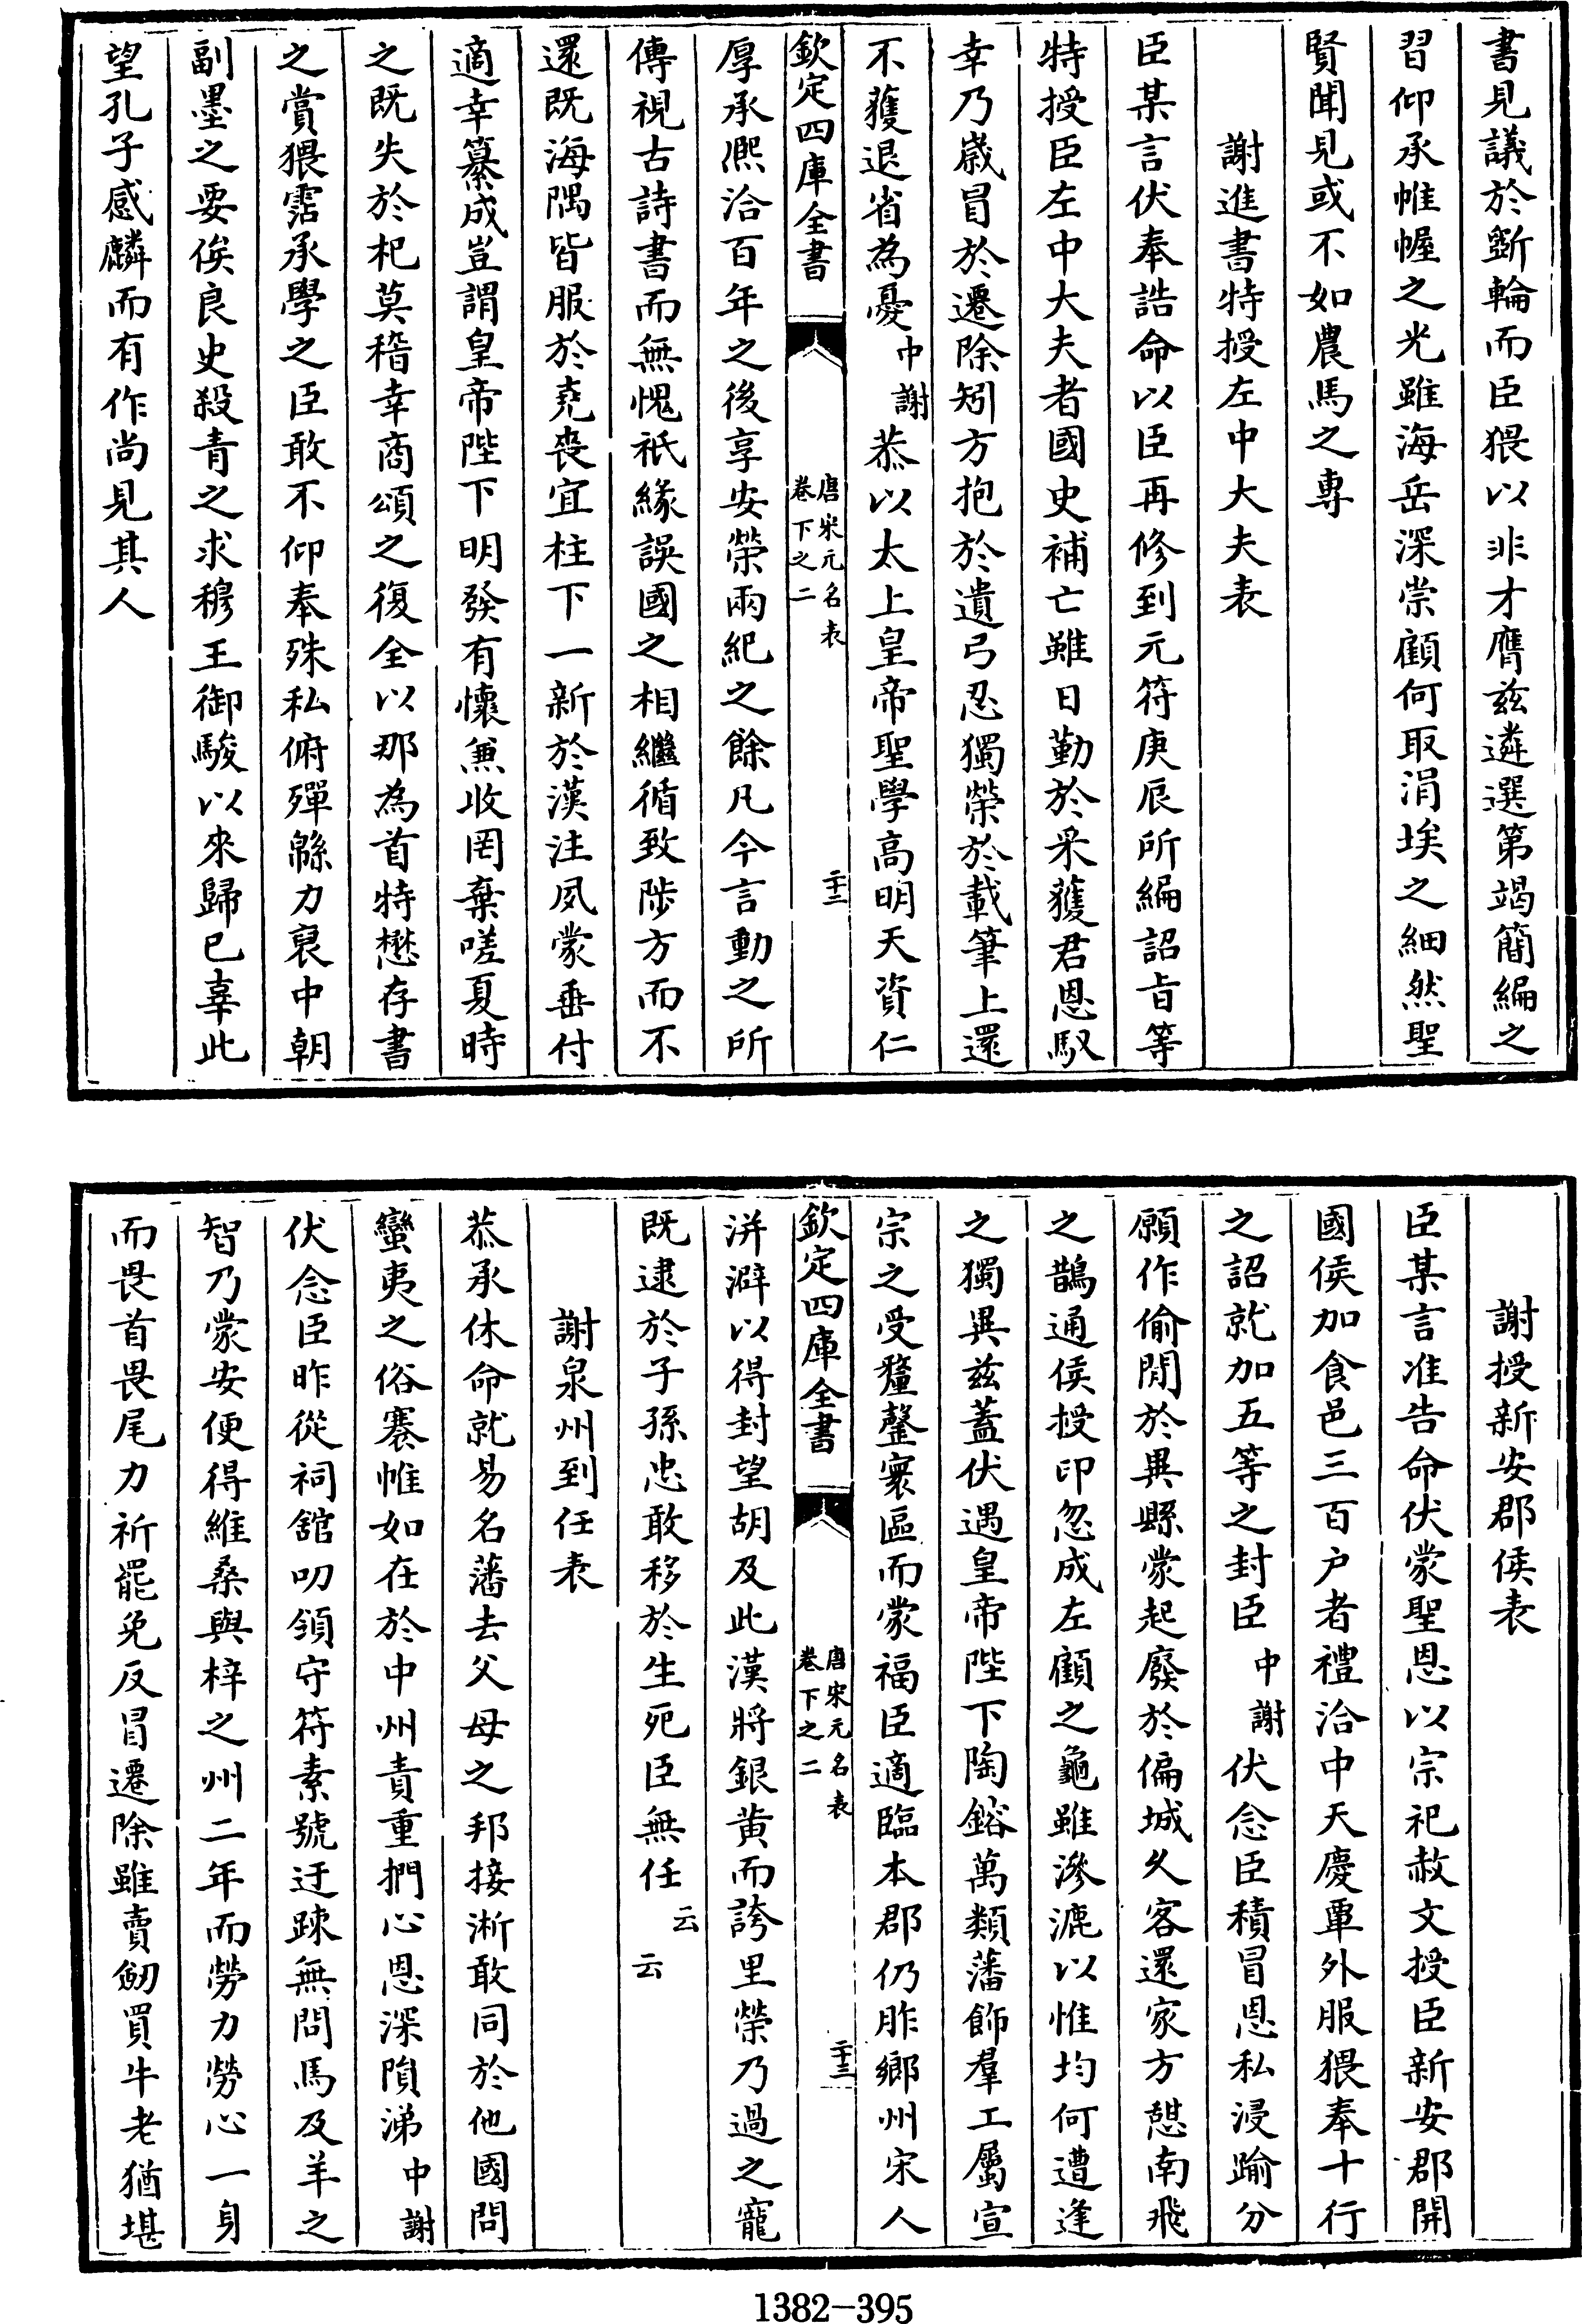 書見議於斵輪而臣猥以非才膺兹遴選第竭簡編之
習仰承帷幄之光雖海岳深崇顧何取涓埃之細然聖
賢聞見或不如農馬之專
謝進書特授左中大夫表
臣某言伏奉誥命以臣再修到元符庚辰所編詔旨等
特授臣左中大夫者國史補亡雖日勤於采獲君恩馭
幸乃嵗冒於遷除矧方抱於遺弓忍獨榮於載筆上還
不獲退省為憂中謝恭以太上皇帝聖學髙明天資仁
欽定四庫全書
唐宋元名表
卷下之二
二十二
厚承熈洽百年之後享安榮兩紀之餘凡今言動之所
傳視古詩書而無愧祇緣誤國之相繼循致陟方而不
還既海隅皆服於堯喪宜柱下一新於漢注夙蒙垂付
適幸纂成豈謂皇帝陛下明發有懷兼收罔棄嗟夏時
之既失於杞莫稽幸商頌之復全以那為首特懋存書
之賞猥霑承學之臣敢不仰奉殊私俯殫緜力裒中朝
副墨之要俟良史殺青之求穆王御駿以來歸已辜此
望孔子感麟而有作尚見其人
謝授新安郡侯表
臣某言准告命伏蒙聖恩以宗祀赦文授臣新安郡開
國侯加食邑三百户者禮洽中天慶覃外服猥奉十行
之詔就加五等之封臣中謝伏念臣積冒恩私浸踰分
願作偷閒於異縣蒙起廢於偏城久客還家方憇南飛
之鵲通侯授印忽成左顧之龜雖滲漉以惟均何遭逢
之獨異兹蓋伏遇皇帝陛下陶鎔萬類藩飾羣工屬宣
宗之受釐罄寰區而蒙福臣適臨本郡仍胙鄉州宋人
欽定四庫全書
唐宋元名表
卷下之二
二十三
洴澼以得封望胡及此漢將銀黄而誇里榮乃過之寵
既逮於子孫忠敢移於生死臣無任云云
謝泉州到任表
恭承休命就易名藩去父母之邦接淅敢同於他國問
蠻夷之俗褰帷如在於中州責重捫心恩深隕涕中謝
伏念臣昨從祠舘叨領守符素號迂踈無問馬及羊之
智乃蒙安便得維桑與梓之州二年而勞力勞心一身
而畏首畏尾力祈罷免反冒遷除雖賣劒買牛老猶堪
1382-395